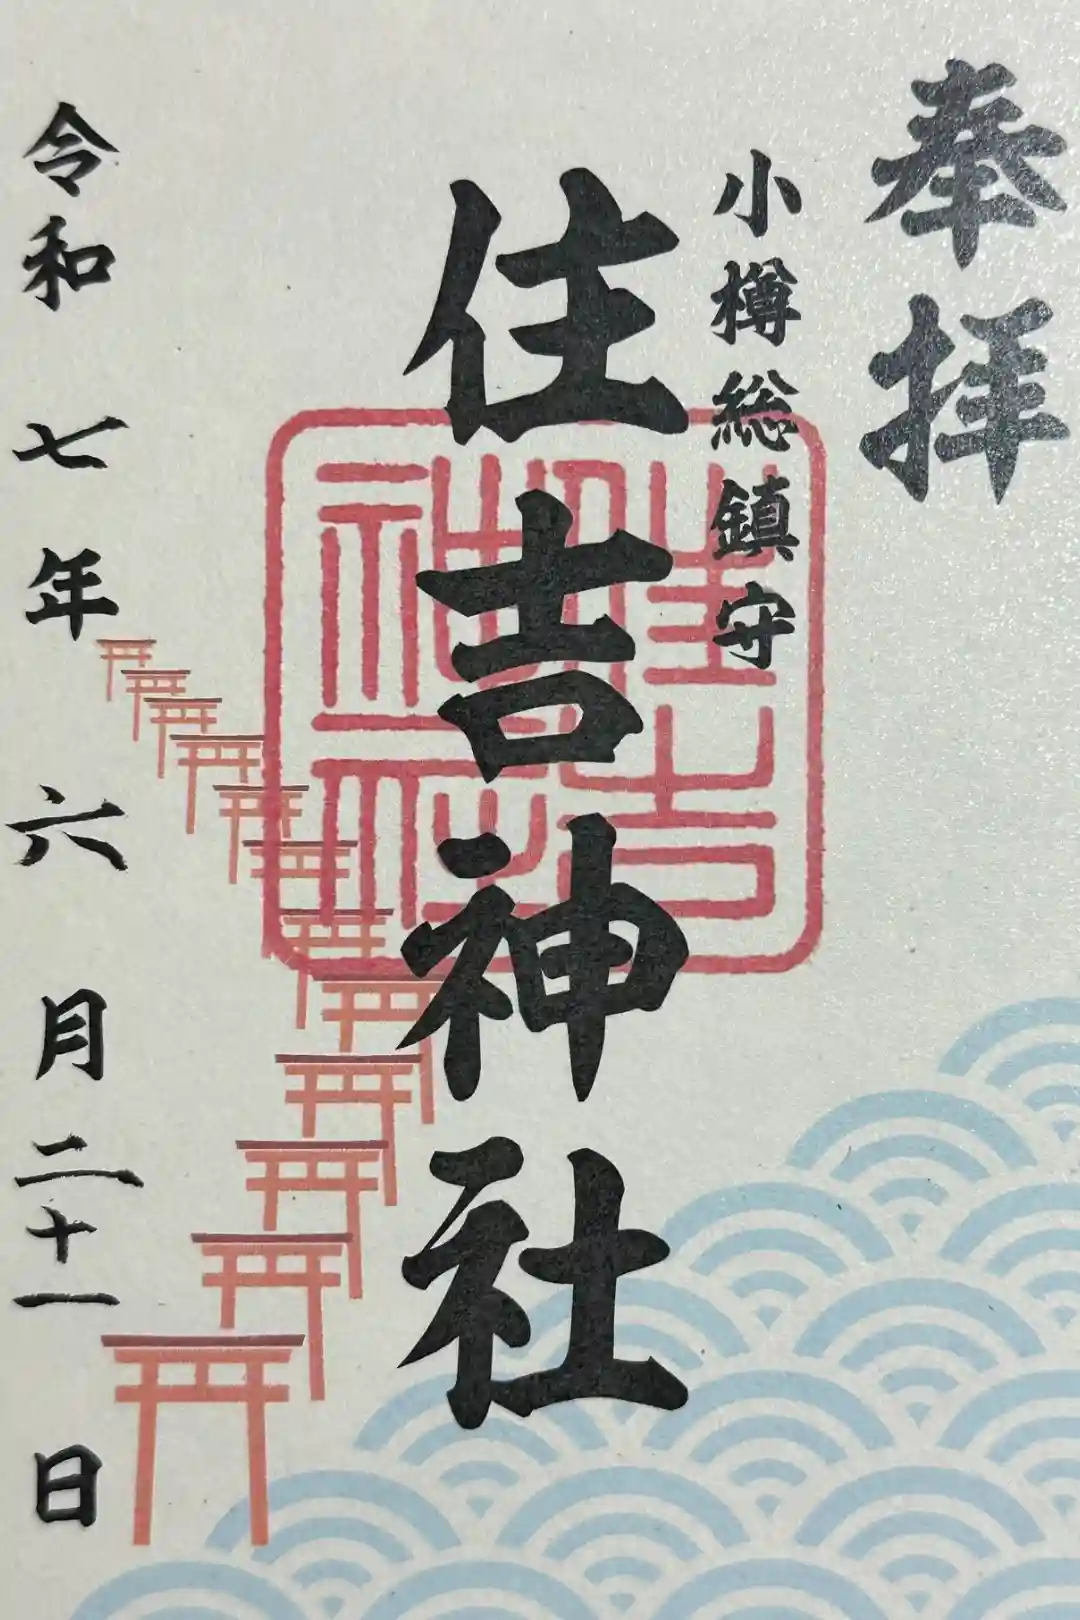 奉拝
小樽総鎮守
住吉神社
住吉
神社
令和七年六月二十一日